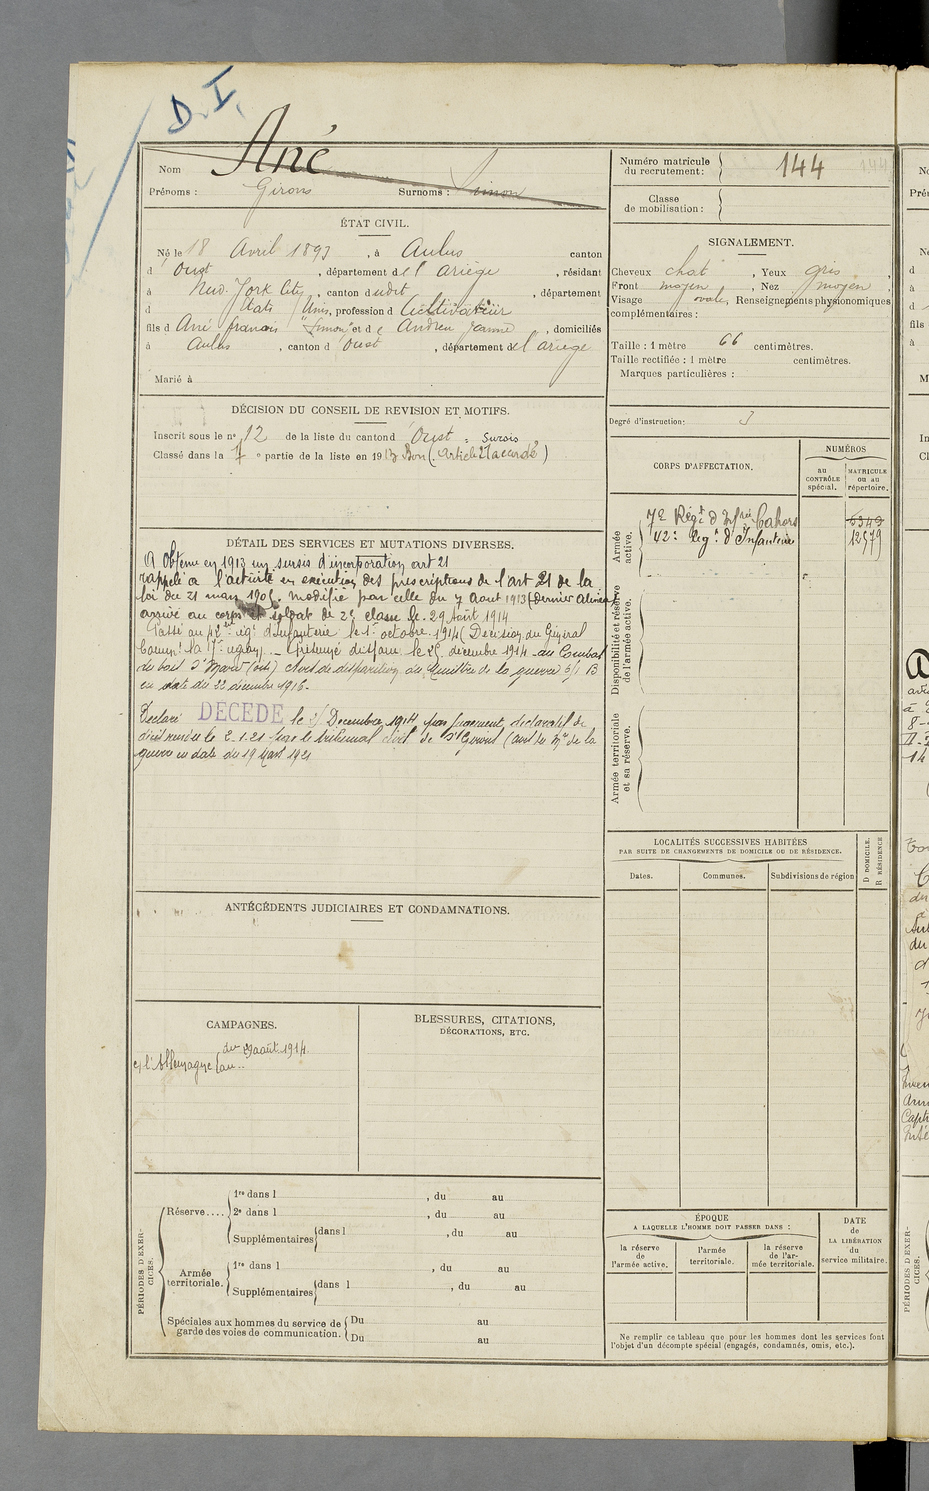 D. I.
Nom Ané
Prénoms : Girons Surnoms : Simon
ÉTAT CIVIL.
Né le 18 Avril 1893, à Aulus canton
d'Oust, département de l'Ariège, résidant
à New-York City, canton dudit, département
d États Unis, profession d Cultivateur
fils d'Ané françois "Simon" et de Andreu Jeanne, domiciliés
à Aulus, canton d'Oust, département de l'ariège
Marié à
DÉCISION DU CONSEIL DE REVISION ET MOTIFS.
Inscrit sous le n° 12 de la liste du canton d'Oust : Sursis
Classé dans la 1 e partie de la liste en 1913 Bon (article 21 accordé)
DÉTAIL DES SERVICES ET MUTATIONS DIVERSES.
A Obtenu en 1913 un sursis d'incorporation art 21
rappelé à l'activité en exécution des prescriptions de l'art 21 de la
loi du 21 mars 1905, modifié par celle du 7 aout 1913 (dernier Alinéa)
arrivé au corps et soldat de 2e classe le 29 Août 1914
Passé au 42me rég.t d'Infanterie le 1er octobre 1914 (Décision du Général
Comm.t la 17e région) - Présumé disparu le 25 décembre 1914 - au Combat
du bois St Mard (Oise) Avis de disparition du Ministre de la guerre
en date du 22 décembre 1916.
Déclaré DÉCÉDÉ le 25 Décembre 1914 par jugement déclaratif de
décès rendu le 2-1-21 par le tribunal civil de St Girons (avis du Mre de la
guerre en date du 19 Mars 1921
ANTÉCÉDENTS JUDICIAIRES ET CONDAMNATIONS.
CAMPAGNES.
du 29 août 1914
C/ l'Allemagne au..
BLESSURES, CITATIONS,
DÉCORATIONS, ETC.
PÉRIODES D'EXERCICES.
Réserve....
1re dans l , du au
2e dans l , du au
Supplémentaires dans l , du au
Armée
territoriale.
1re dans l , du au
Supplémentaires dans l , du au
Spéciales aux hommes du service de
garde des voies de communication.
Du au
Du au
Numéro matricule
du recrutement : 144
Classe
de mobilisation :
SIGNALEMENT.
Cheveux chat, Yeux gris,
Front moyen, Nez moyen,
Visage ovale, Renseignements physionomiques
complémentaires :
Taille : 1 mètre 66 centimètres.
Taille rectifiée : 1 mètre centimètres.
Marques particulières :
Degré d'instruction: 3
CORPS D'AFFECTATION.
NUMÉROS
au
CONTRÔLE
spécial.
MATRICULE
ou au
répertoire.
Armée
active.
7e Régt d'Infrie Cahors 6349
42e Régt d'Infanterie 12579
Disponibilité et réserve
de l'armée active.
Armée territoriale
et sa réserve.
LOCALITÉS SUCCESSIVES HABITÉES
PAR SUITE DE CHANGEMENTS DE DOMICILE OU DE RÉSIDENCE.
Dates. Communes. Subdivisions de région
D DOMICILE.
R RÉSIDENCE
ÉPOQUE
A LAQUELLE L'HOMME DOIT PASSER DANS :
la réserve
de
l'armée active.
l'armée
territoriale.
la réserve
de l'ar-
mée territoriale.
DATE
de
LA LIBÉRATION
du
service militaire.
Ne remplir ce tableau que pour les hommes dont les services font
l'objet d'un décompte spécial (engagés, condamnés, omis, etc.).